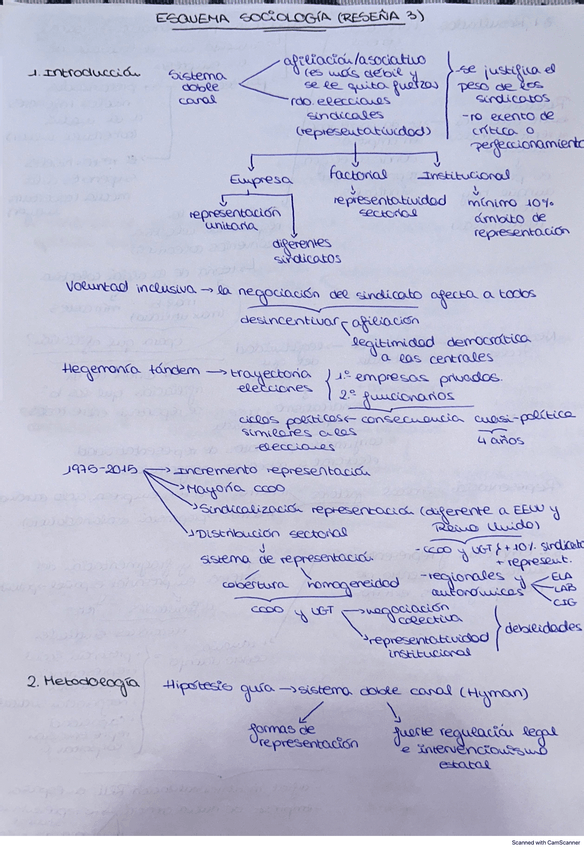 ESQUEMA SOCIOLOGÍA (RESEÑA 3)
1. Introducción
sistema doble canal
afiliación/asociativo
(es más débil y
se le quita fuerza)
rdo. elecciones
sindicales
(representatividad)
-se justifica el
peso de los
sindicatos
-no exento de
crítica o
perfeccionamiento
Empresa
Factorial
Institucional
representación
unitaria
diferentes
sindicatos
representatividad
sectorial
mínimo 10%
ámbito de
representación
Voluntad inclusiva → la negociación del sindicato afecta a todos
desincentivar
afiliación
legitimidad democrática
a las centrales
Hegemonía tándem → trayectoria
elecciones
1º empresas privadas.
2º funcionarios
ciclos políticos ← consecuencia cuasi-política
similares a las
elecciones
4 años
1975-2015
Incremento representación
Mayoría CCOO
Sindicalización representación (diferente a EEUU y
Reino Unido)
Distribución sectorial
sistema de representación
cobertura homogeneidad
CCOO y UGT
negociación
colectiva
representatividad
institucional
-CCOO y UGT } +10% sindicatos
+ represent.
-regionales y
autonómicas
ELA
LAB
CIG
debilidades
2. Metodología
Hipótesis guía → sistema doble canal (Hyman)
formas de
representación
fuerte regulación legal
e intervencionismo
estatal
Scanned with CamScanner